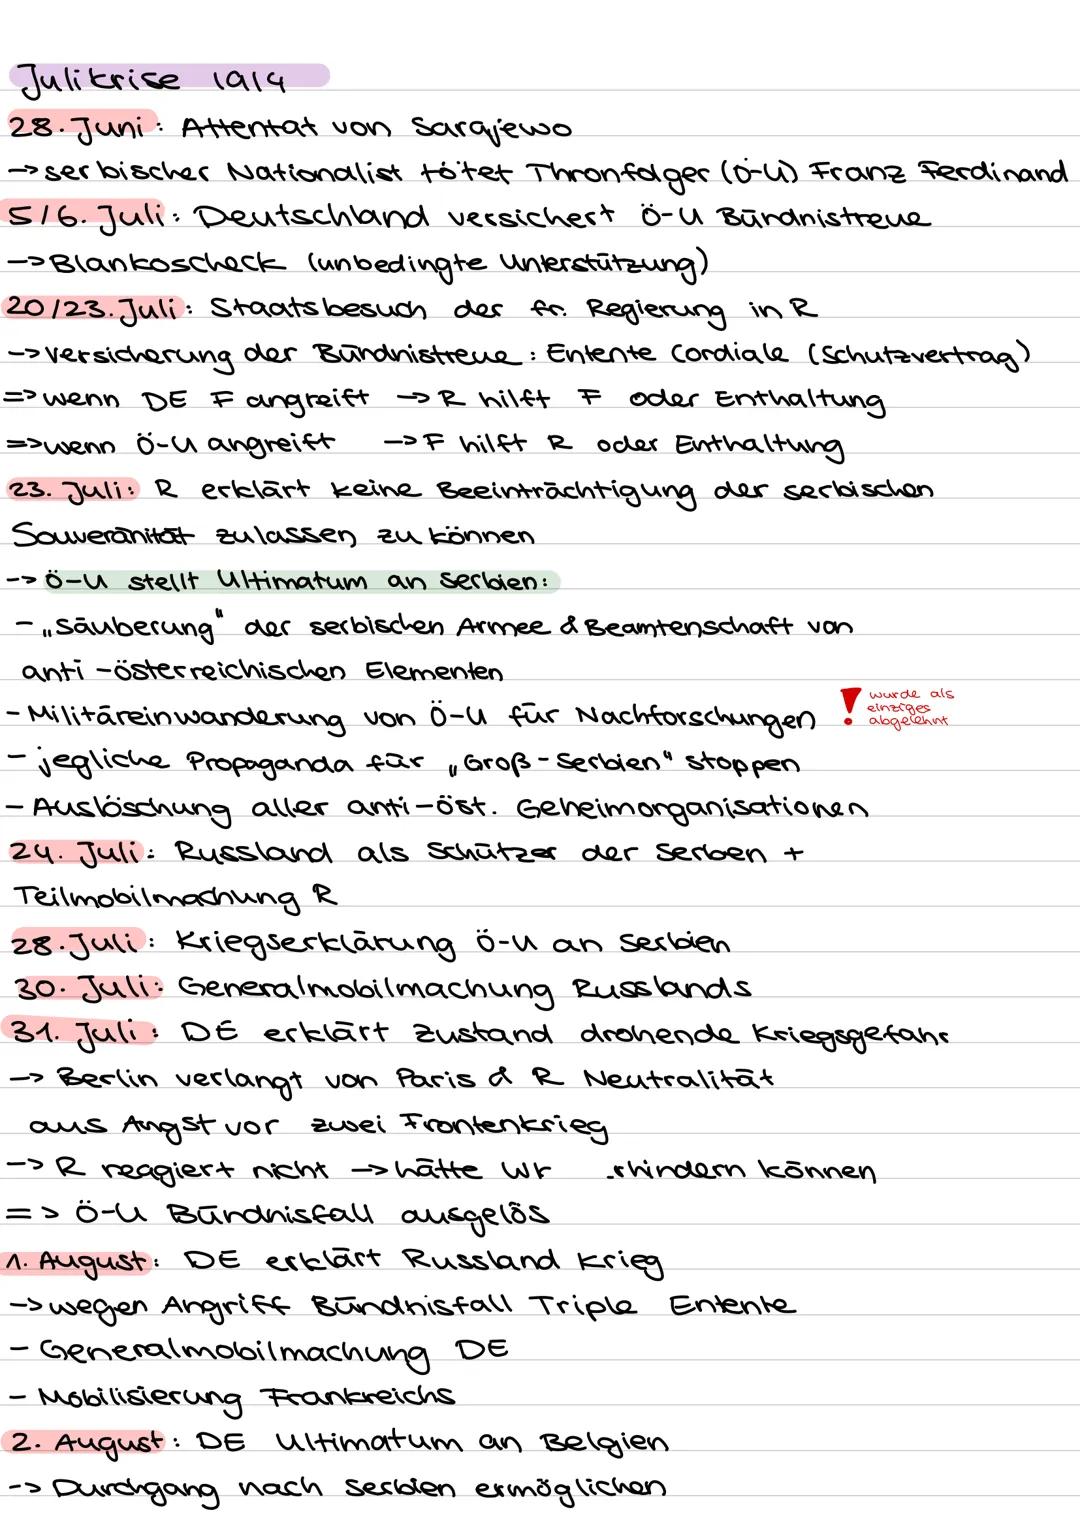 Julikrise 1914
28. Juni: Attentat von Sarajewo
-> serbischer Nationalist tötet Thronfolger (Ö-U) Franz Ferdinand
5/6. Juli: Deutschland versichert Ö-U Bündnistreue
-> Blankoscheck (unbedingte Unterstützung)
20/23. Juli: Staatsbesuch der fr. Regierung in R
-> Versicherung der Bündnistreue: Entente Cordiale (Schutzvertrag)
=> wenn DE F angreift -> R hilft F oder Enthaltung
=> wenn Ö-U angreift -> F hilft R oder Enthaltung
23. Juli: R erklärt keine Beeinträchtigung der serbischen
Souveränität zulassen zu können
-> Ö-U stellt Ultimatum an Serbien:
- „Säuberung" der serbischen Armee & Beamtenschaft von
anti-österreichischen Elementen
- Militäreinwanderung von Ö-U für Nachforschungen ! wurde als
einziges
abgelehnt
- jegliche Propaganda für „Groß-Serbien" stoppen
- Auslöschung aller anti-öst. Geheimorganisationen
24. Juli: Russland als Schützer der Serben +
Teilmobilmachung R
28. Juli: Kriegserklärung Ö-U an Serbien
30. Juli: Generalmobilmachung Russlands
31. Juli: DE erklärt Zustand drohende Kriegsgefahr
-> Berlin verlangt von Paris & R Neutralität
aus Angst vor zwei Frontenkrieg
-> R reagiert nicht -> hätte können
=> Ö-U Bündnisfall ausgelös
1. August: DE erklärt Russland Krieg
-> wegen Angriff Bündnisfall Triple Entente
- Generalmobilmachung DE
- Mobilisierung Frankreichs
2. August: DE Ultimatum an Belgien
-> Durchgang nach Serbien ermöglichen